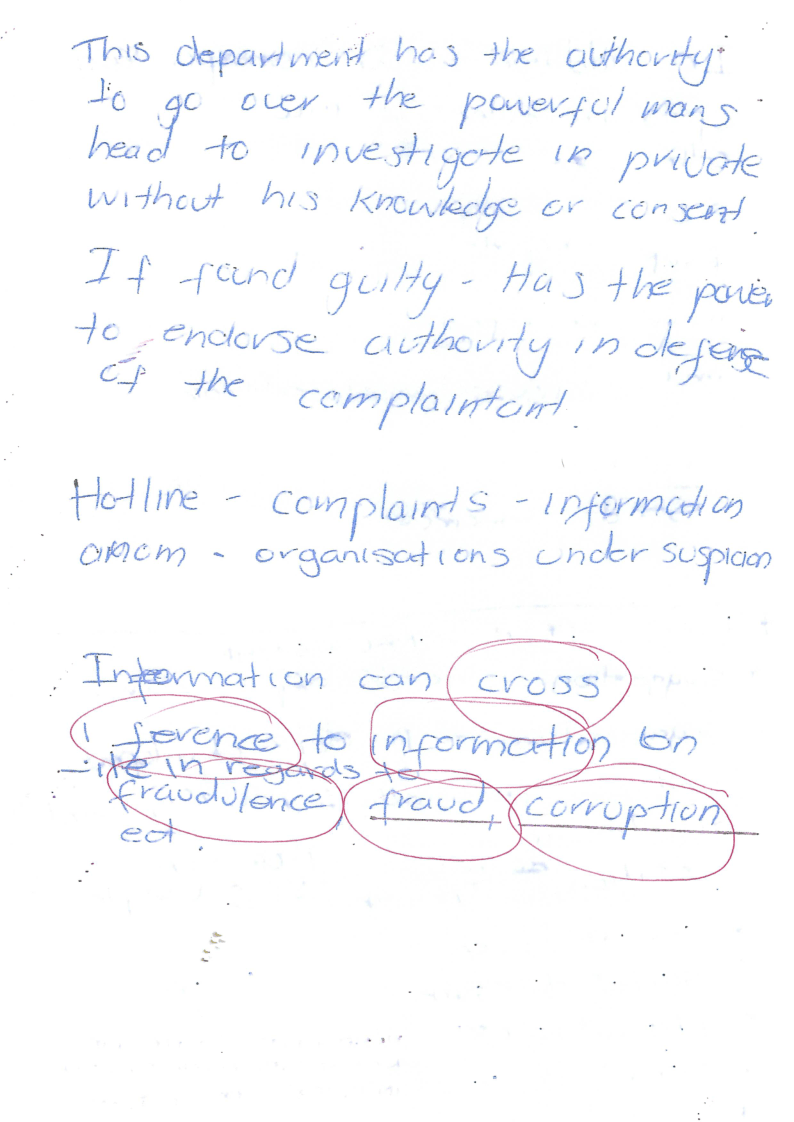 This department has the authority
to go over the powerful mans
head to investigate in private
without his knowledge or consent.
If found guilty - Has the power
to endorse authority in defense
of the complaintant.
Hotline - complaints - information
- organisations under suspicion
Information can cross
ference to information on
in regards to
fraudulence, fraud, corruption
ect.